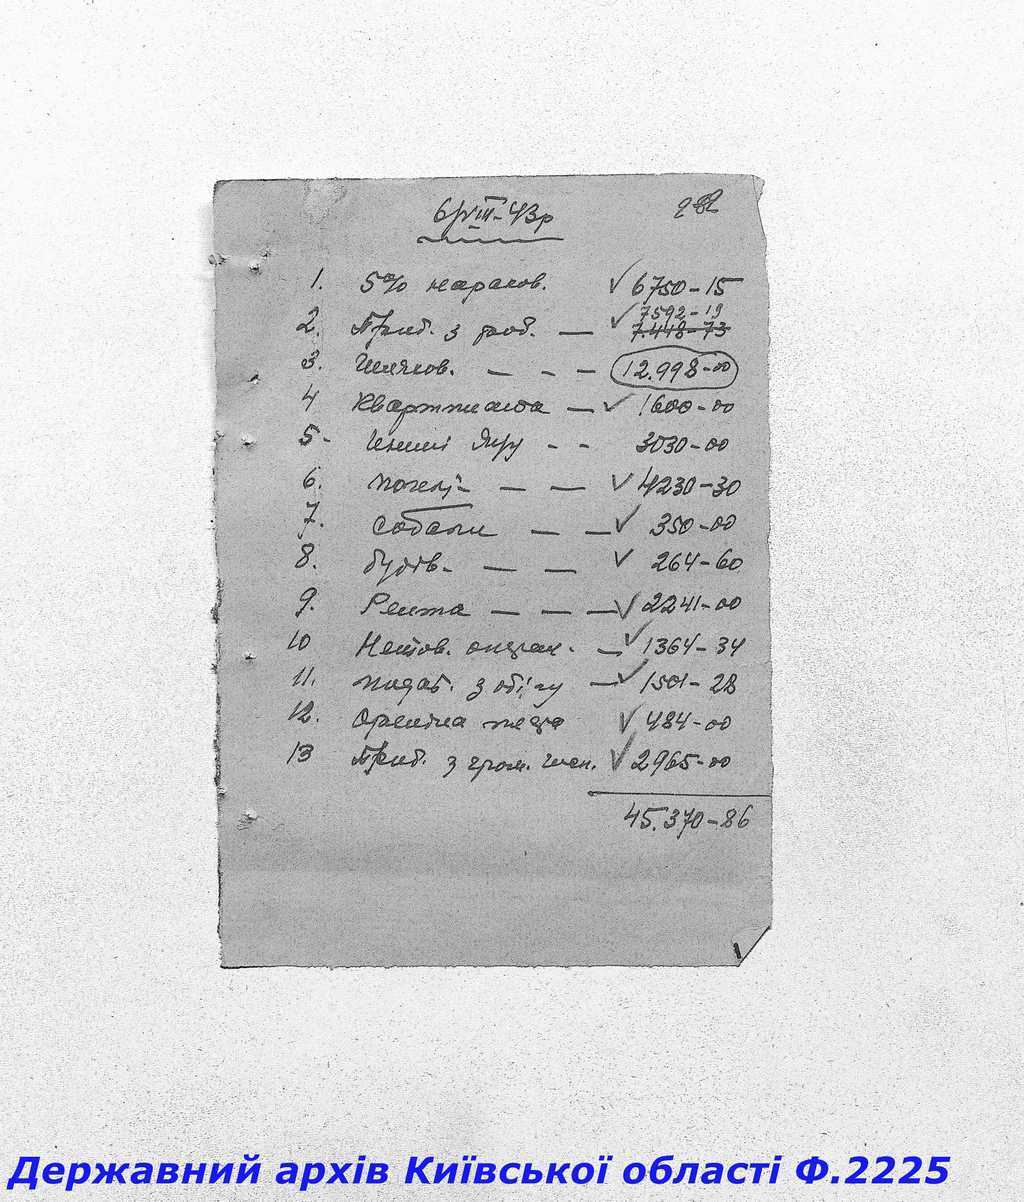 6/VIII-43р
282
1. 5% нарахов. ✓ 6750-15
7592-19
2. Приб. з роб. — ✓ 7.448-73
3. Шляхов. — - — 12.998-00
4 Квартплата — ✓ 1600-00
5- Инші 3030-00
6. — — ✓ 4230-30
7. Собаки — — ✓ 350-00
8. Будів- — — ✓ 264-60
9. Рента — — — ✓ 2241-00
10 Нетов. операц. — ✓ 1364-34
11. подат. з обігу — ✓ 1501-28
12. Орендна плата ✓ 484-00
13 Приб. з гром. ✓ 2965-00
45.370-86
Державний архів Київської області Ф.2225